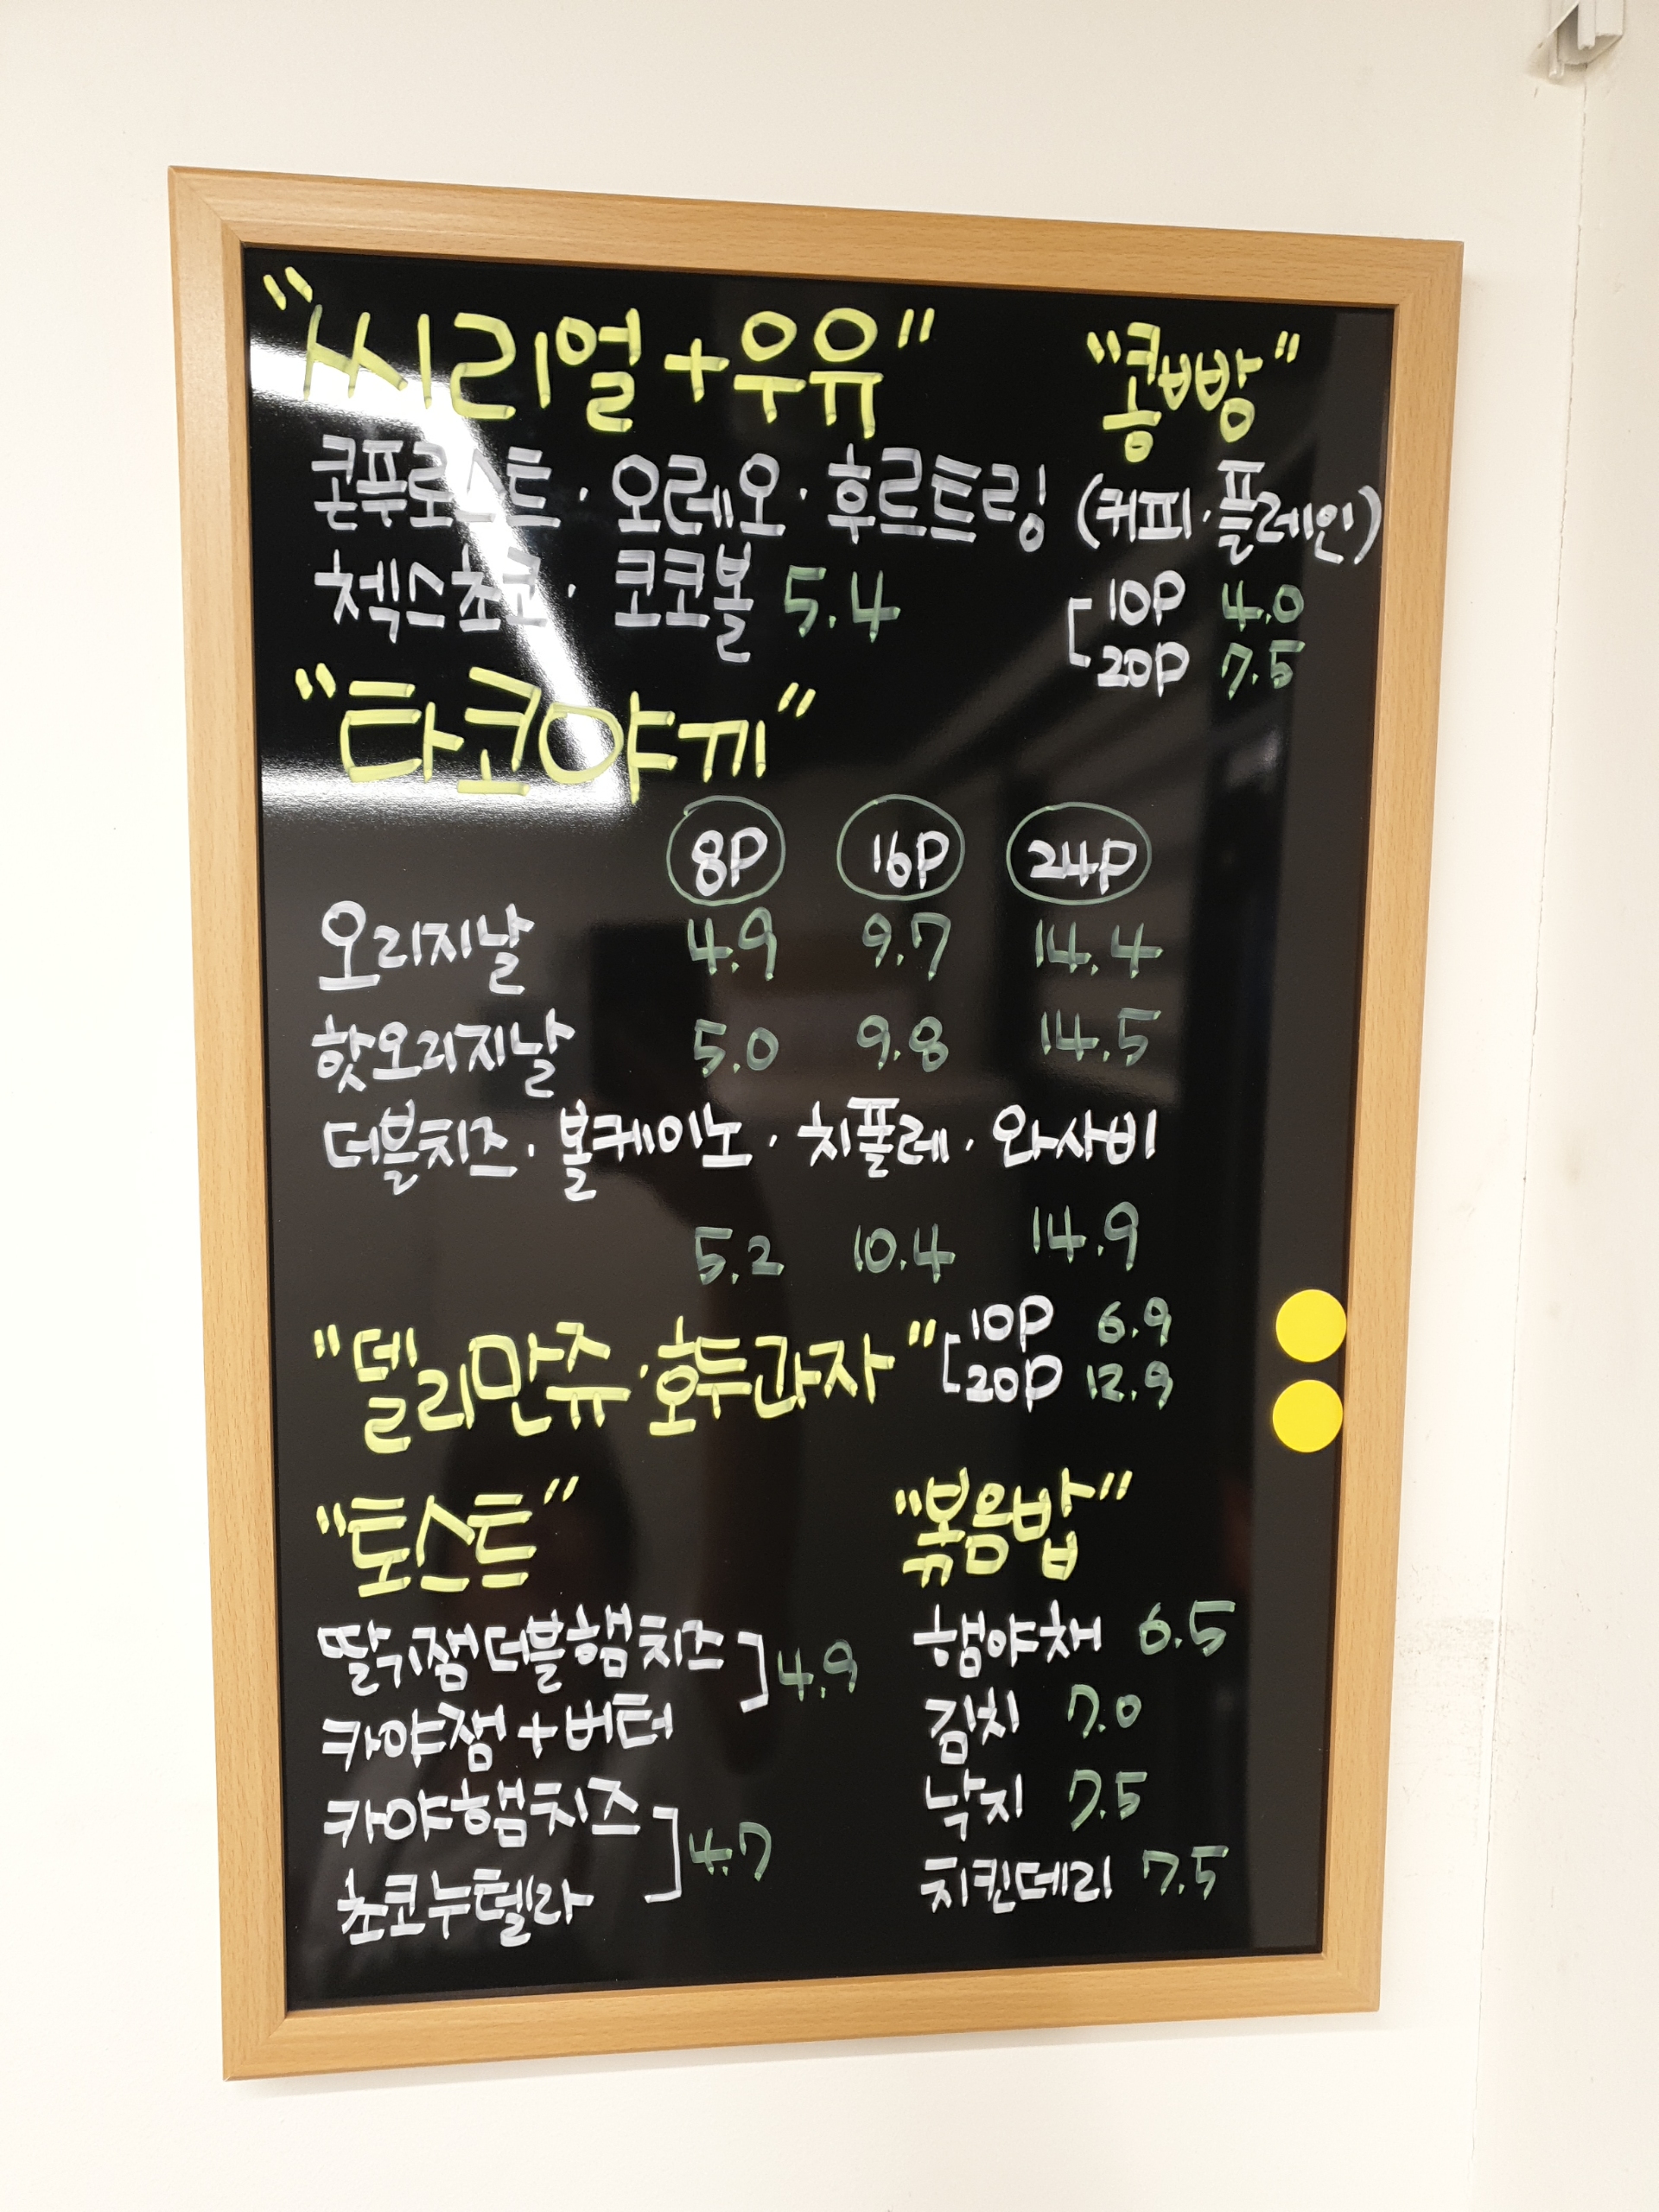 "씨리얼+우유"
콘푸로스트 · 오레오 · 후르트링
첵스초코 · 코코볼 5.4
"콩빵"
(커피 · 플레인)
10P 4.0
20P 7.5
"타코야끼"
8P 16P 24P
오리지날 4.9 9.7 14.4
핫오리지날 5.0 9.8 14.5
더블치즈 · 볼케이노 · 치플레 · 와사비
5.2 10.4 14.9
"델리만쥬 · 호두과자"
10P 6.9
20P 12.9
"토스트"
딸귀잼더블햄치즈
카야잼+버터
4.9
카야햄치즈
초코누텔라
4.7
"볶음밥"
햄야채 6.5
김치 7.0
낙지 7.5
치킨데리 7.5